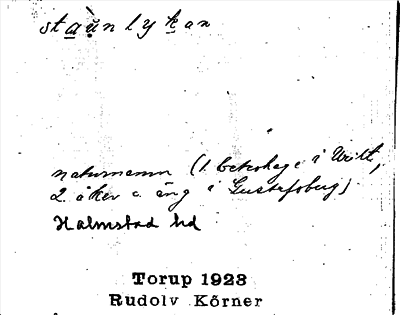 sta̲ṳ̀nlyk̲an
naturnamn (1. beteshage i
2. åker o. äng i Gustafsberg)
Halmstad hd
Torup 1923
Rudolv Körner